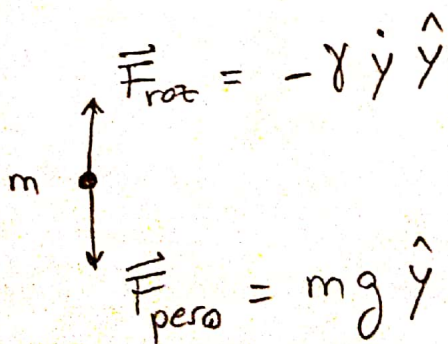 F⃗_roz = - γ ẏ ŷ
m
F⃗_peso = m g ŷ